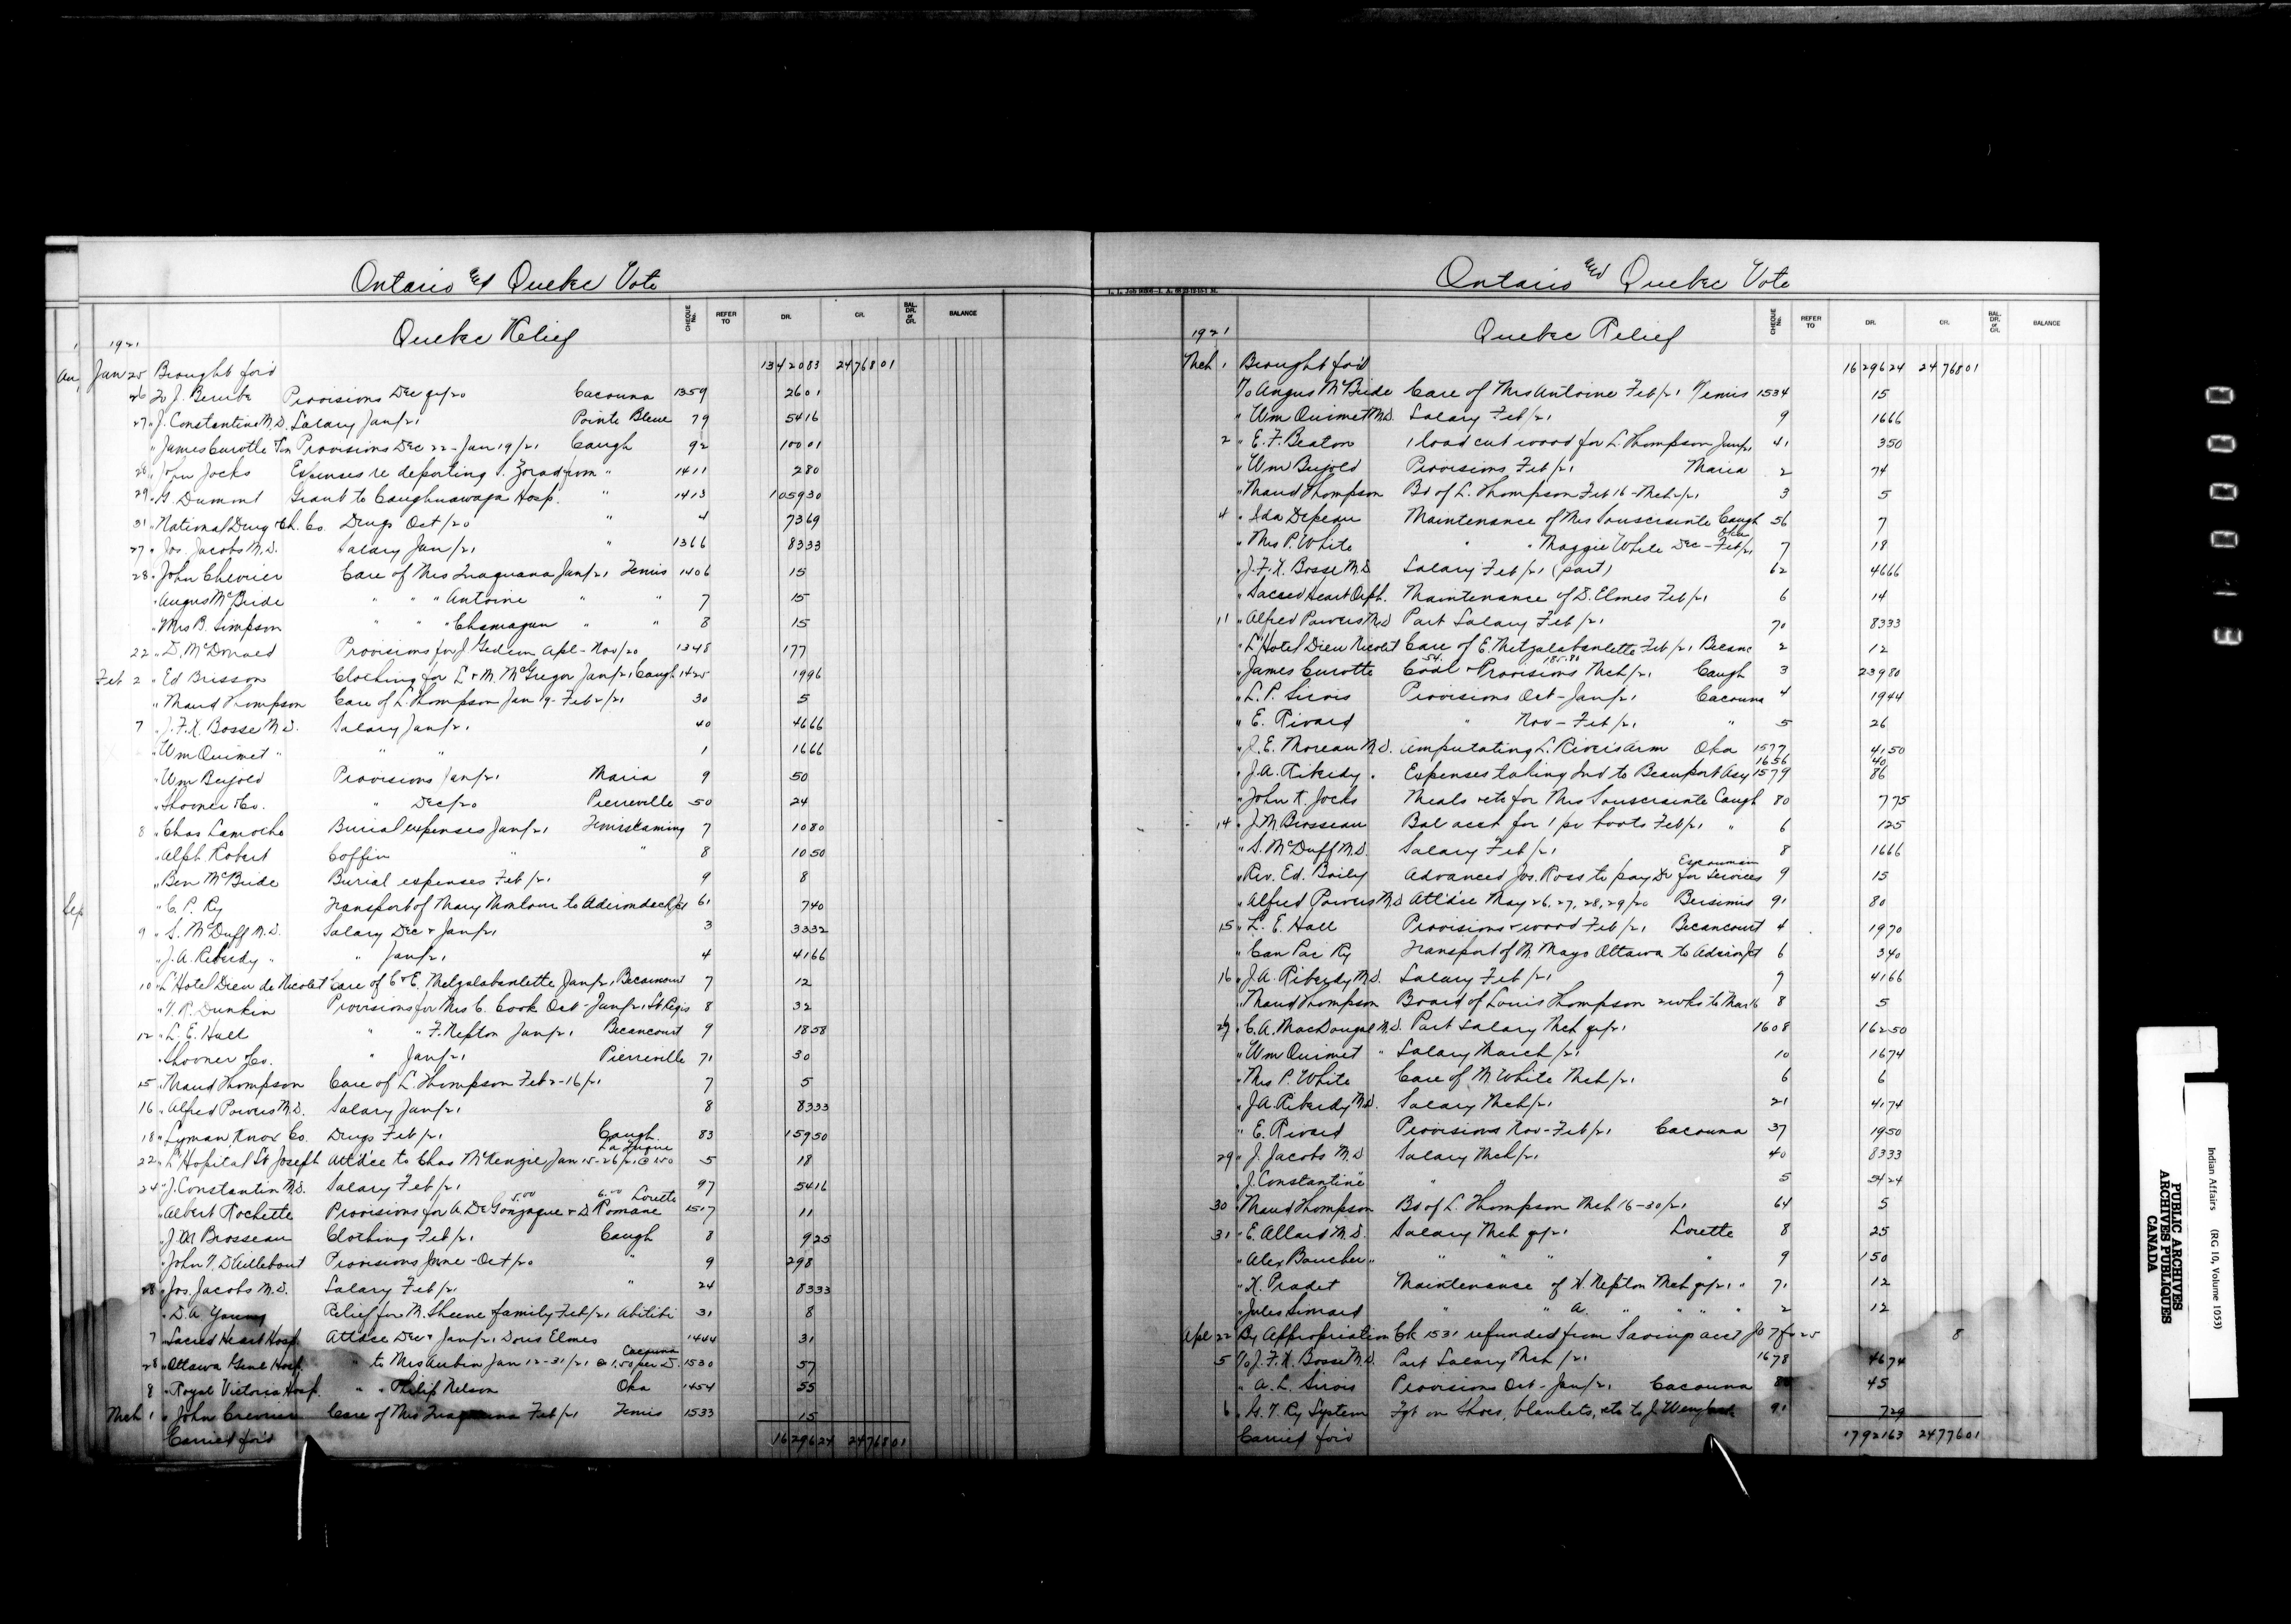 Ontario and Quebec Vote
CHEQUE No. REFER TO DR. CR. BAL. DR. or CR. BALANCE
1921 Quebec Relief
Jan 25 Brought for'd 13420 83 24768 01
26 To J. Berube Provisions Dec qr/20 Cacouna 1359 26 01
27 " J. Constantin M.D. Salary Jan/21 Pointe Bleue 79 54 16
" James Curotte Provisions Dec 22 - Jan 19/21 Caugh 92 100 01
28 " John Jocks Expenses re deporting from " 1411 2 80
29 " G. Dumont Grant to Caughnawaga Hosp. " 1413 1059 30
31 " National Drug & Ch. Co. Drugs Oct/20 " 4 73 69
27 " Jos. Jacobs M.D. Salary Jan/21 " 1366 83 33
28 " John Chevrier Care of Mrs Jan/21 Temis 1406 15
" Angus McBride " " " Antoine " " 7 15
" Mrs B. Simpson " " " Chamagun " " 8 15
22 " D. McDonald Provisions for J. Gedeon Apl - Nov/20 1348 177
Feb 2 " Ed Brisson Clothing for L & M. McGregor Jan/21 Caugh 1425 19 96
" Maud Thompson Care of L. Thompson Jan 19 - Feb 2/21 30 5
7 " J. F. X. Bosse M.D. Salary Jan/21 40 46 66
" Wm Ouimet " " " 1 16 66
" Wm Bujold Provisions Jan/21 Maria 9 50
" Shooner & Co. " Dec/20 Pierreville 50 24
8 " Chas Lamoche Burial expenses Jan/21 Temiskaming 7 10 80
" Alph. Robert Coffin " " 8 10 50
" Ben McBride Burial expenses Feb/21 9 8
" C. P. Ry Transport of Mary Montour to Adirondack Jct 61 7 40
9 " S. McDuff M.D. Salary Dec & Jan/21 3 33 32
" J. A. Riberdy " " Jan/21 4 41 66
10 " L'Hotel Dieu de Nicolet Care of C & E. Metzalabanlette Jan/21 Becancourt 7 12
" T. R. Dunkin Provisions for Mrs C. Cook Oct - Jan/21 St Regis 8 32
12 " L. E. Hall " " F. Nepton Jan/21 Becancourt 9 18 58
" Shooner & Co. " Jan/21 Pierreville 71 30
15 " Maud Thompson Care of L. Thompson Feb 2-16/21 7 5
16 " Alfred Powers M.D. Salary Jan/21 8 83 33
18 " Lyman, Knox Co. Drugs Feb/21 Caugh. 83 159 50
22 " L'Hopital St Joseph Att'dce to Chas McKenzie Jan 15-26/21 @ 1.50 La Tuque 5 18
24 " J. Constantin M.D. Salary Feb/21 97 54 16
" Albert Rochette Provisions for A. De Gonzague 5.00 & D. Romane 6.00 Lorette 1517 11
" J. M. Brosseau Clothing Feb/21 Caugh 8 9 25
" John T. D'Ailleboust Provisions June - Oct/20 " 9 298
28 " Jos. Jacobs M.D. Salary Feb/21 " 24 83 33
" D. A. Young Relief for M. Sheene family Feb/21 Abitibi 31 8
7 " Sacred Heart Hosp. Att'dce Dec & Jan/21 Doris Elmes 1444 31
28 " Ottawa Genl Hosp. " to Mrs Aubin Jan 12-31/21 @ 1.50 per D. Cacouna 1530 57
8 " Royal Victoria Hosp. " " Philip Nelson Oka 1454 55
Mch 1 " John Crevier Care of Mrs Feb/21 Temis 1533 15
Carried for'd 16296 24 24768 01
Ontario and Quebec Vote
CHEQUE No. REFER TO DR. CR. BAL. DR. or CR. BALANCE
1921 Quebec Relief
Mch 1 Brought for'd 16296 24 24768 01
To Angus McBride Care of Mrs Antoine Feb/21 Temis 1534 15
" Wm Ouimet M.D. Salary Feb/21 9 16 66
2 " E. F. Beaton 1 load cut wood for L. Thompson Jan/21 41 3 50
" Wm Bujold Provisions Feb/21 Maria 2 74
" Maud Thompson Bd of L. Thompson Feb 16 - Mch 2/21 3 5
4 " Ida Depeau Maintenance of Mrs Souscrainte Caugh 56 7
" Mrs P. White " " Maggie White Dec - Feb/21 Oka 7 18
" J. F. X. Bosse M.D. Salary Feb/21 (part) 62 46 66
" Sacred Heart Orph. Maintenance of D. Elmes Feb/21 6 14
11 " Alfred Powers M.D. Part Salary Feb/21 70 83 33
" L'Hotel Dieu Nicolet Care of E. Metzalabanlette Feb/21 Becanc 2 12
" James Curotte Coal 54. & Provisions 185.80 Mch/21 Caugh 3 239 80
" L. P. Sirois Provisions Oct - Jan/21 Cacouna 4 19 44
" E. Rivard " Nov - Feb/21 " 5 26
" J. E. Moreau M.D. Amputating L. River's arm Oka 1577 41 50
" J. A. Riberdy " Expenses taking Ind to Beauport Asy 1656 1579 40 86
" John K. Jocks Meals etc for Mrs Souscrainte Caugh 80 7 75
14 " J. M. Brosseau Bal acct for 1 pr boots Feb/21 " 6 1 25
" S. McDuff M.D. Salary Feb/21 8 16 66
" Rev. Ed. Boily Advanced Jos. Ross to pay Dr for services Escoumain 9 15
" Alfred Powers M.D. Att'dce May 26, 27, 28, 29/20 Bersimis 91 80
15 " L. E. Hall Provisions & wood Feb/21 Becancourt 4 19 70
" Can Pac Ry Transport of M. Mayo Ottawa to Adiron Jct 6 3 40
16 " J. A. Riberdy M.D. Salary Feb/21 7 41 66
" Maud Thompson Board of Louis Thompson 2 wks to Mar 16 8 5
" C. A. MacDougal M.D. Part Salary Mch qr/21 1608 162 50
" Wm Ouimet " Salary March/21 10 16 74
" Mrs P. White Care of M. White Mch/21 6 6
" J. A. Riberdy M.D. Salary Mch/21 21 41 74
" E. Rivard Provisions Nov - Feb/21 Cacouna 37 19 50
29 " J. Jacobs M.D. Salary Mch/21 40 83 33
" J. Constantine " " " 5 54 24
30 " Maud Thompson Bd of L. Thompson Mch 16-30/21 64 5
31 " E. Allard M.D. Salary Mch qr/21 Lorette 8 25
" Alex Boucher " " " " " 9 150
" X. Pradet Maintenance of H. Nepton Mch qr/21 " 71 12
" Jules Simard " " A. " " " " 2 12
Apl 22 By Appropriation Ck 1531 refunded from Savings acct Jo 7 fo 25 8
5 To J. F. X. Bosse M.D. Part Salary Mch/21 1678 46 74
" A. L. Sirois Provisions Oct - Jan/21 Cacouna 45
6 " G. T. Ry System Fgt on Shoes, blankets, etc to J. 91 7 29
Carried for'd 17921 63 24776 01
Indian Affairs (RG 10, Volume 1053)
PUBLIC ARCHIVES
ARCHIVES PUBLIQUES
CANADA